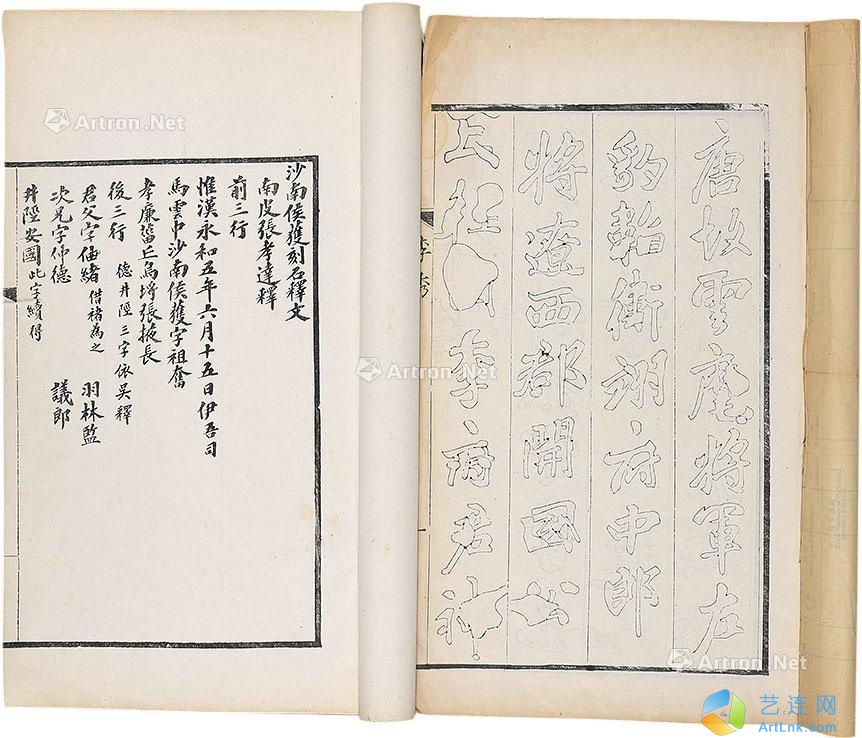 唐故雲麾將軍左
豹韜衛翊〻府中郎
將遼西郡開國公
上柱國李〻府君神
李秀
沙南侯獲刻石釋文
南皮張孝達釋
前三行
惟漢永和五年六月十五日伊吾司
馬雲中沙南侯獲字祖奮
孝廉菑丘烏埒張掖長
後三行 德井陘三字依吳釋
君父字伷緒 借褚為之 羽林監
次兄字仲德 議郎
井陘安國此字續得
Artron.Net
Artron.Net
Artron.Net
艺连网
ArtLnk.com